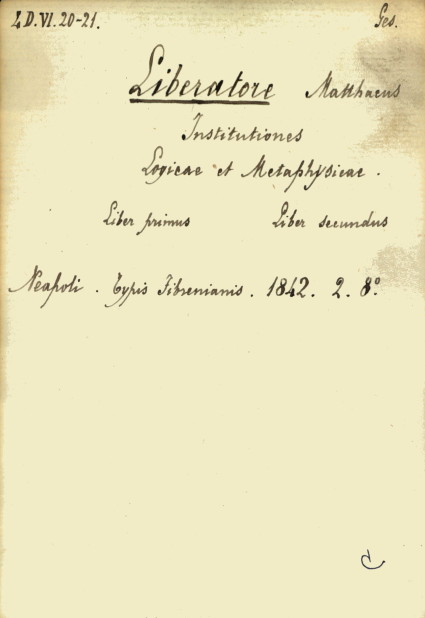 4.D.VI.20-21. Ges.
Liberatore Matthaeus
Institutiones
Logicae et Metaphysicae.
Liber primus Liber secundus
Neapoli. Typis Fibrenianis. 1842. 2. 8°.